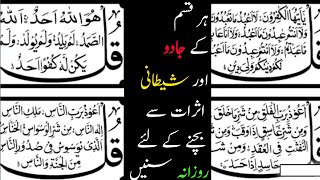 ہر قسم
کے جادو
اور شیطانی
اثرات سے
بچنے کے لئے
روزانہ سنیں
قُلْ
هُوَ اللهُ أَحَدٌ اللهُ
الصَّمَدُ لَمْ يَلِدْ وَلَمْ يُولَدْ وَلَمْ
يَكُنْ لَهُ كُفُوًا أَحَدٌ
قُلْ
يَأَيُّهَا الْكَفِرُونَ لَا أَعْبُدُ مَا تَعْبُدُونَ
قُلْ
أَعُوذُ بِرَبِّ النَّاسِ مَلِكِ النَّاسِ
إِلَهِ النَّاسِ مِنْ شَرِّ الْوَسْوَاسِ الْخَنَّاسِ
الَّذِي يُوَسْوِسُ فِي صُدُورِ النَّاسِ
مِنَ الْجِنَّةِ وَالنَّاسِ
قُلْ
أَعُوذُ بِرَبِّ الْفَلَقِ مِنْ شَرِّ مَا خَلَقَ
وَمِنْ شَرِّ غَاسِقٍ إِذَا وَقَبَ وَمِنْ شَرِّ
النَّفَّثَتِ فِي الْعُقَدِ وَمِنْ شَرِّ
حَاسِدٍ إِذَا حَسَدَ